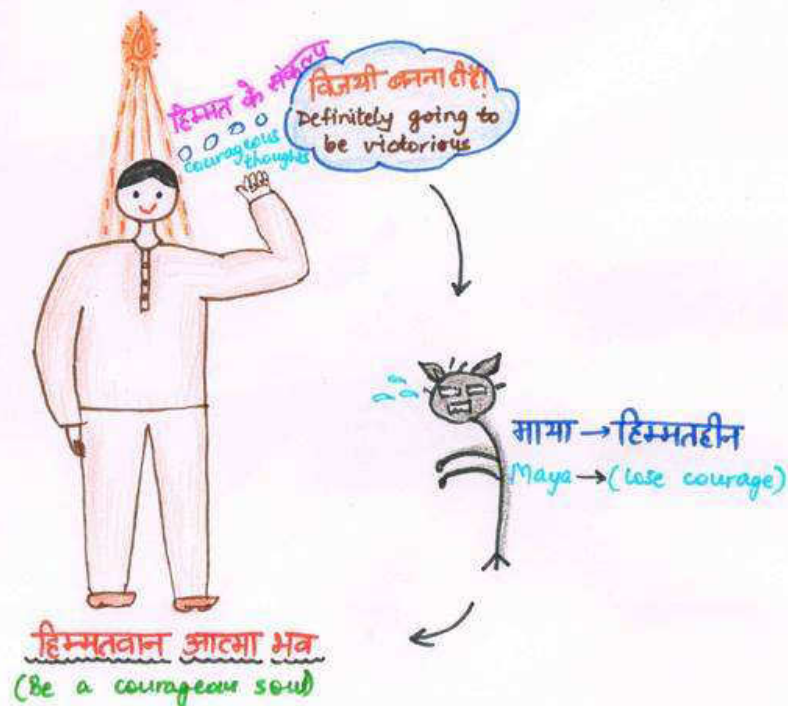 हिम्मत के संकल्प
courageous
thoughts
विजयी बनना ही है!
Definitely going to
be victorious
माया → हिम्मतहीन
Maya → (lose courage)
हिम्मतवान आत्मा भव
(Be a courageous soul)